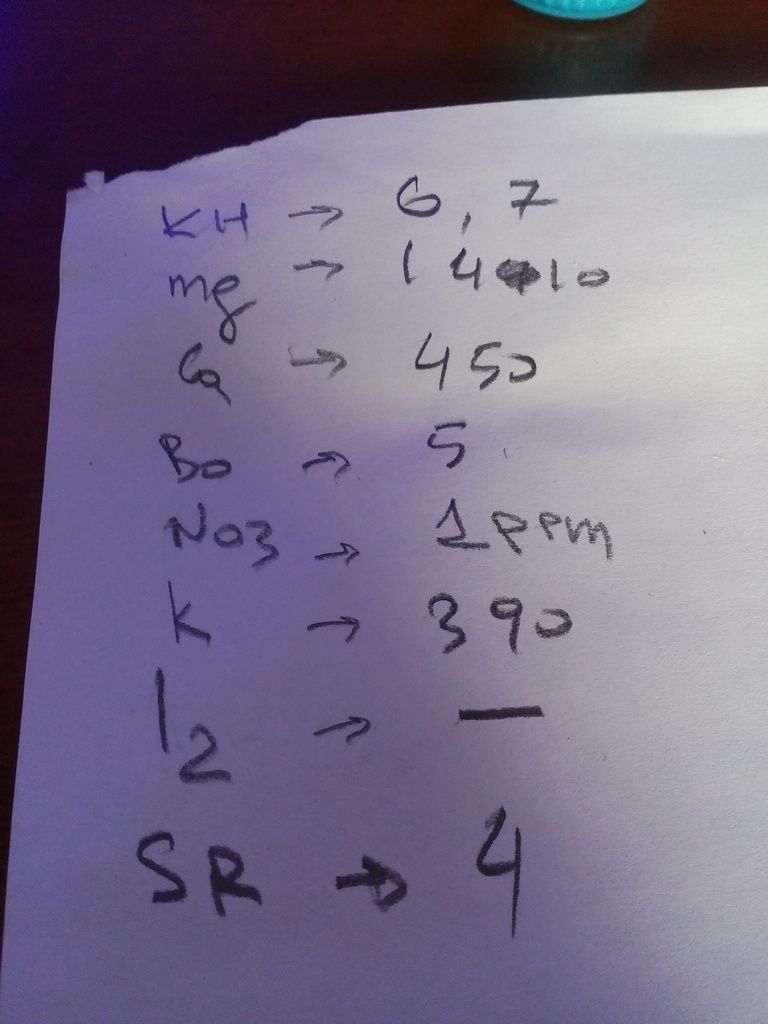 KH → 6,7
mg → 1410
Ca → 450
Bo → 5
NO3 → 1ppm
K → 390
I2 → —
SR → 4